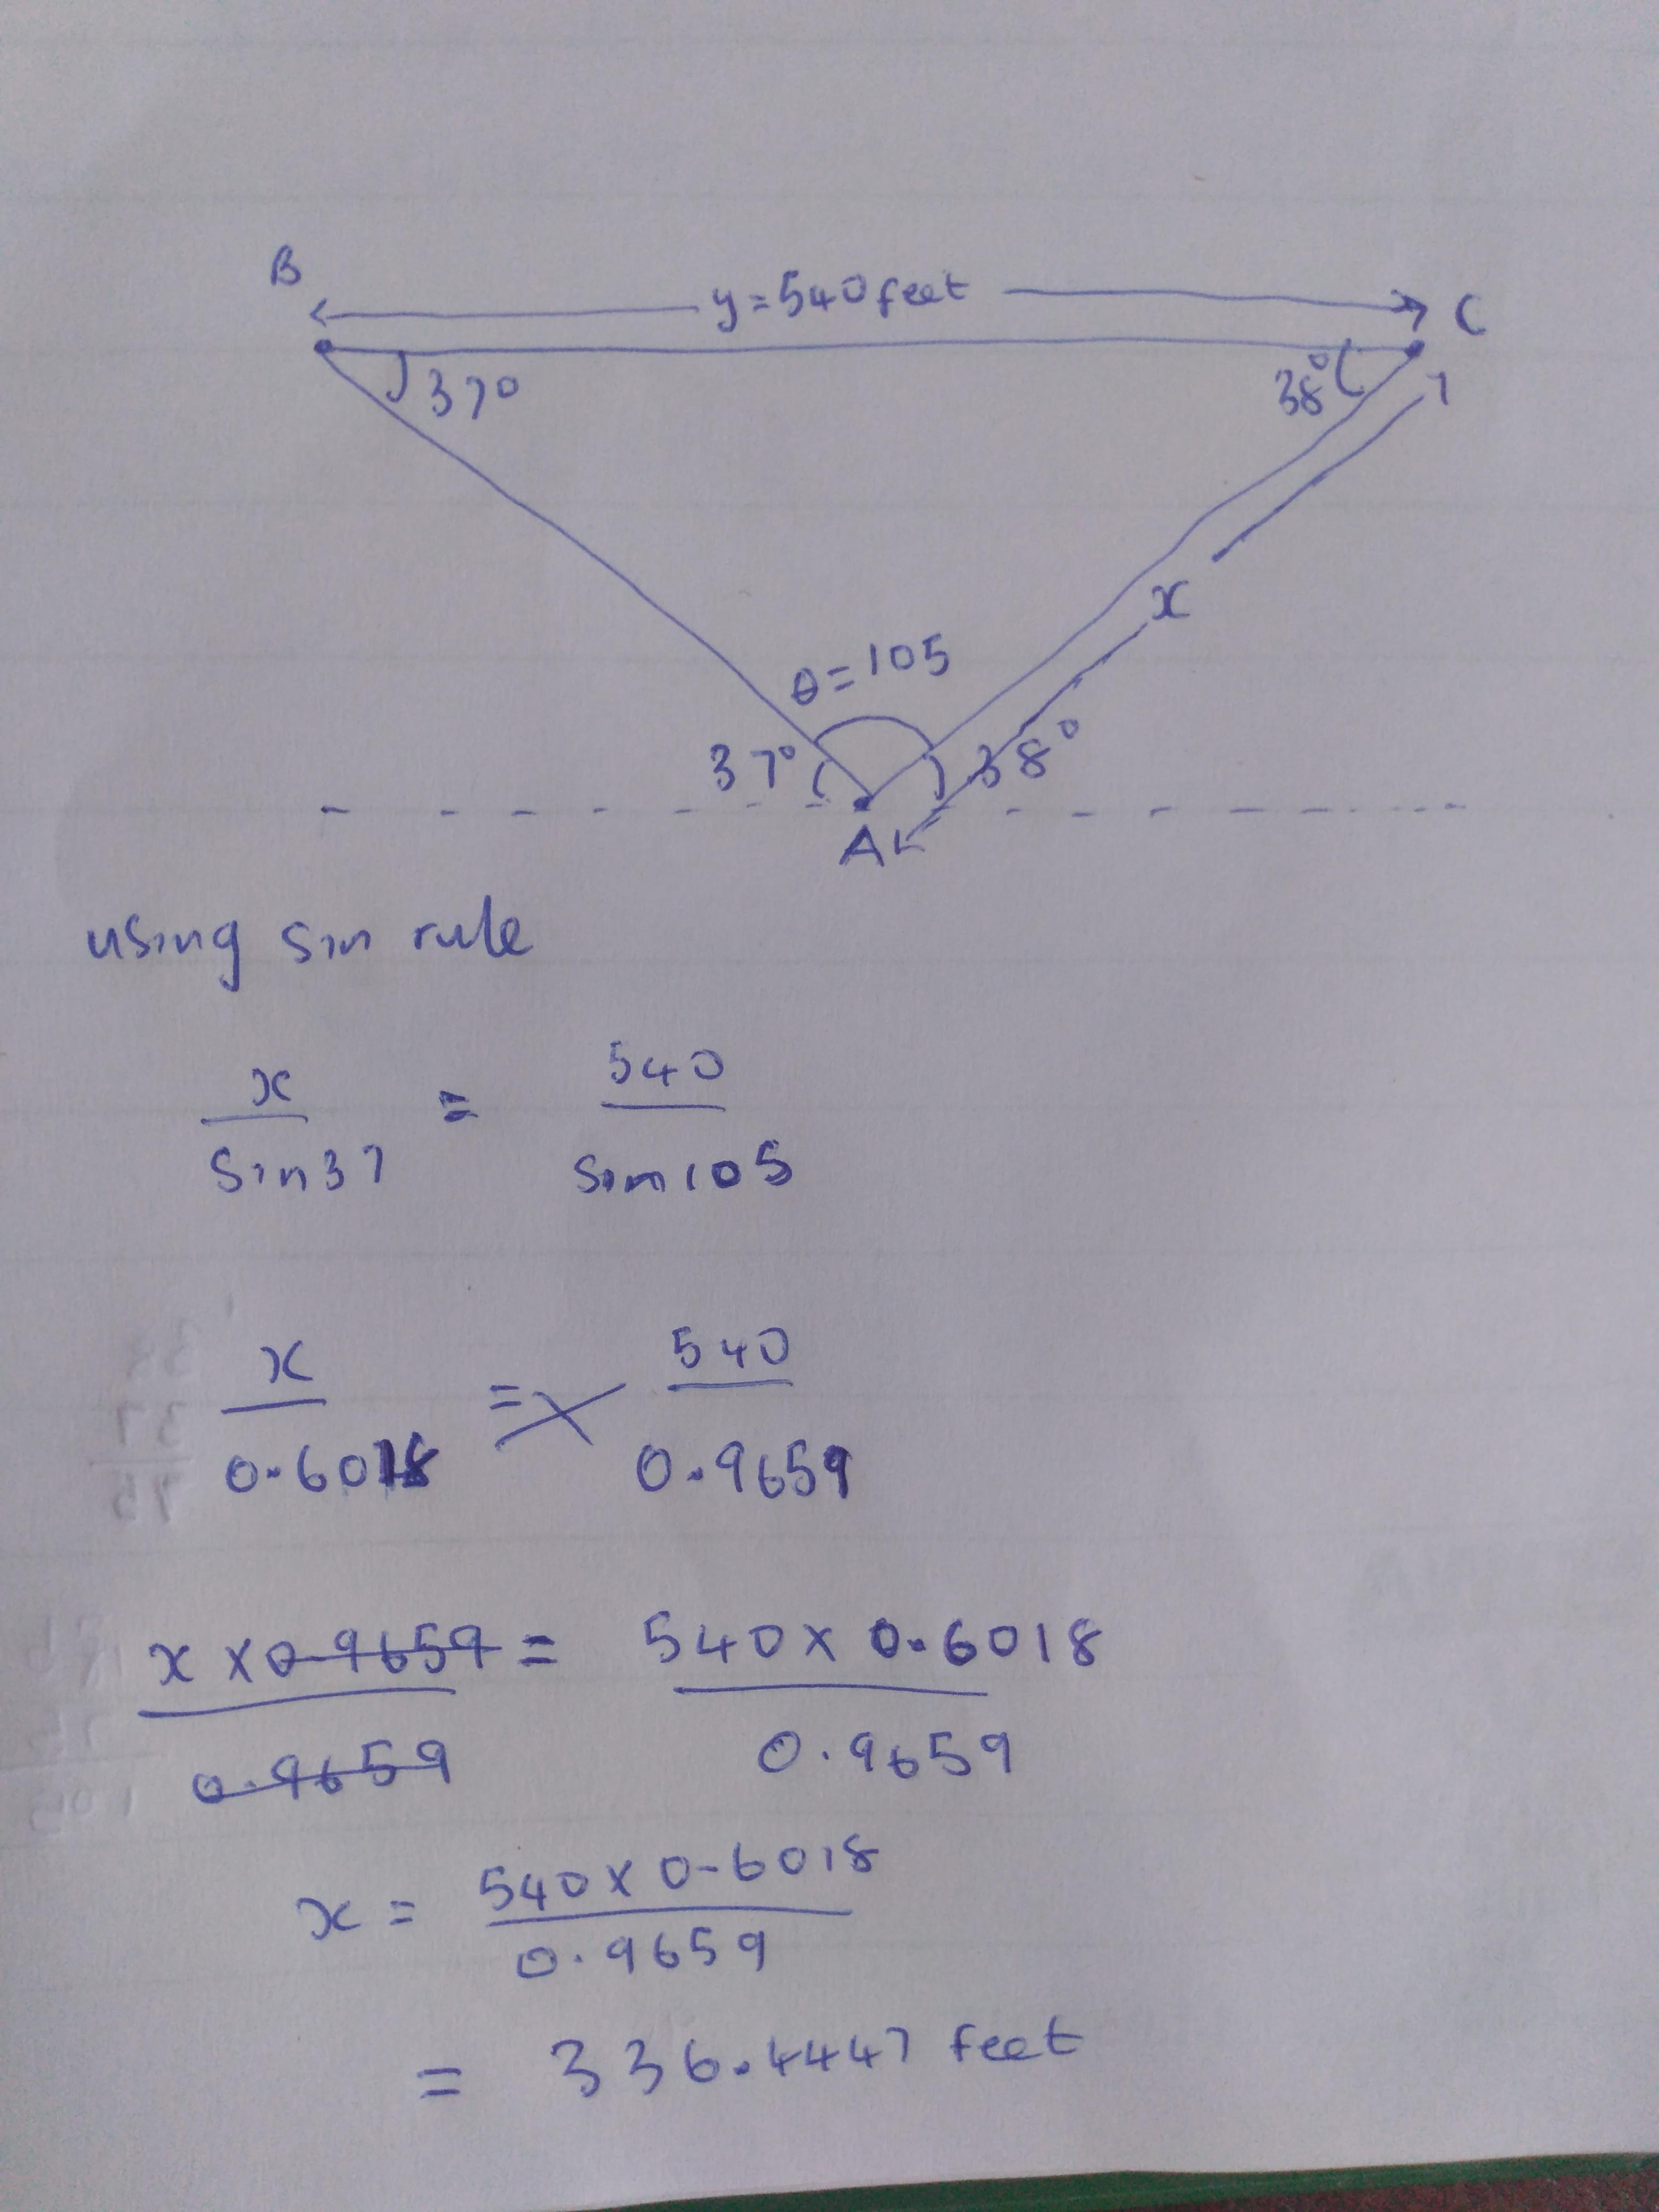 B
y = 540 feet
C
37°
38°
x
θ = 105
37°
38°
A
using sin rule
x/sin37 = 540/sin105
x/0.6018 = 540/0.9659
x × 0.9659/0.9659 = 540 × 0.6018/0.9659
x = 540 × 0.6018/0.9659
= 336.4447 feet